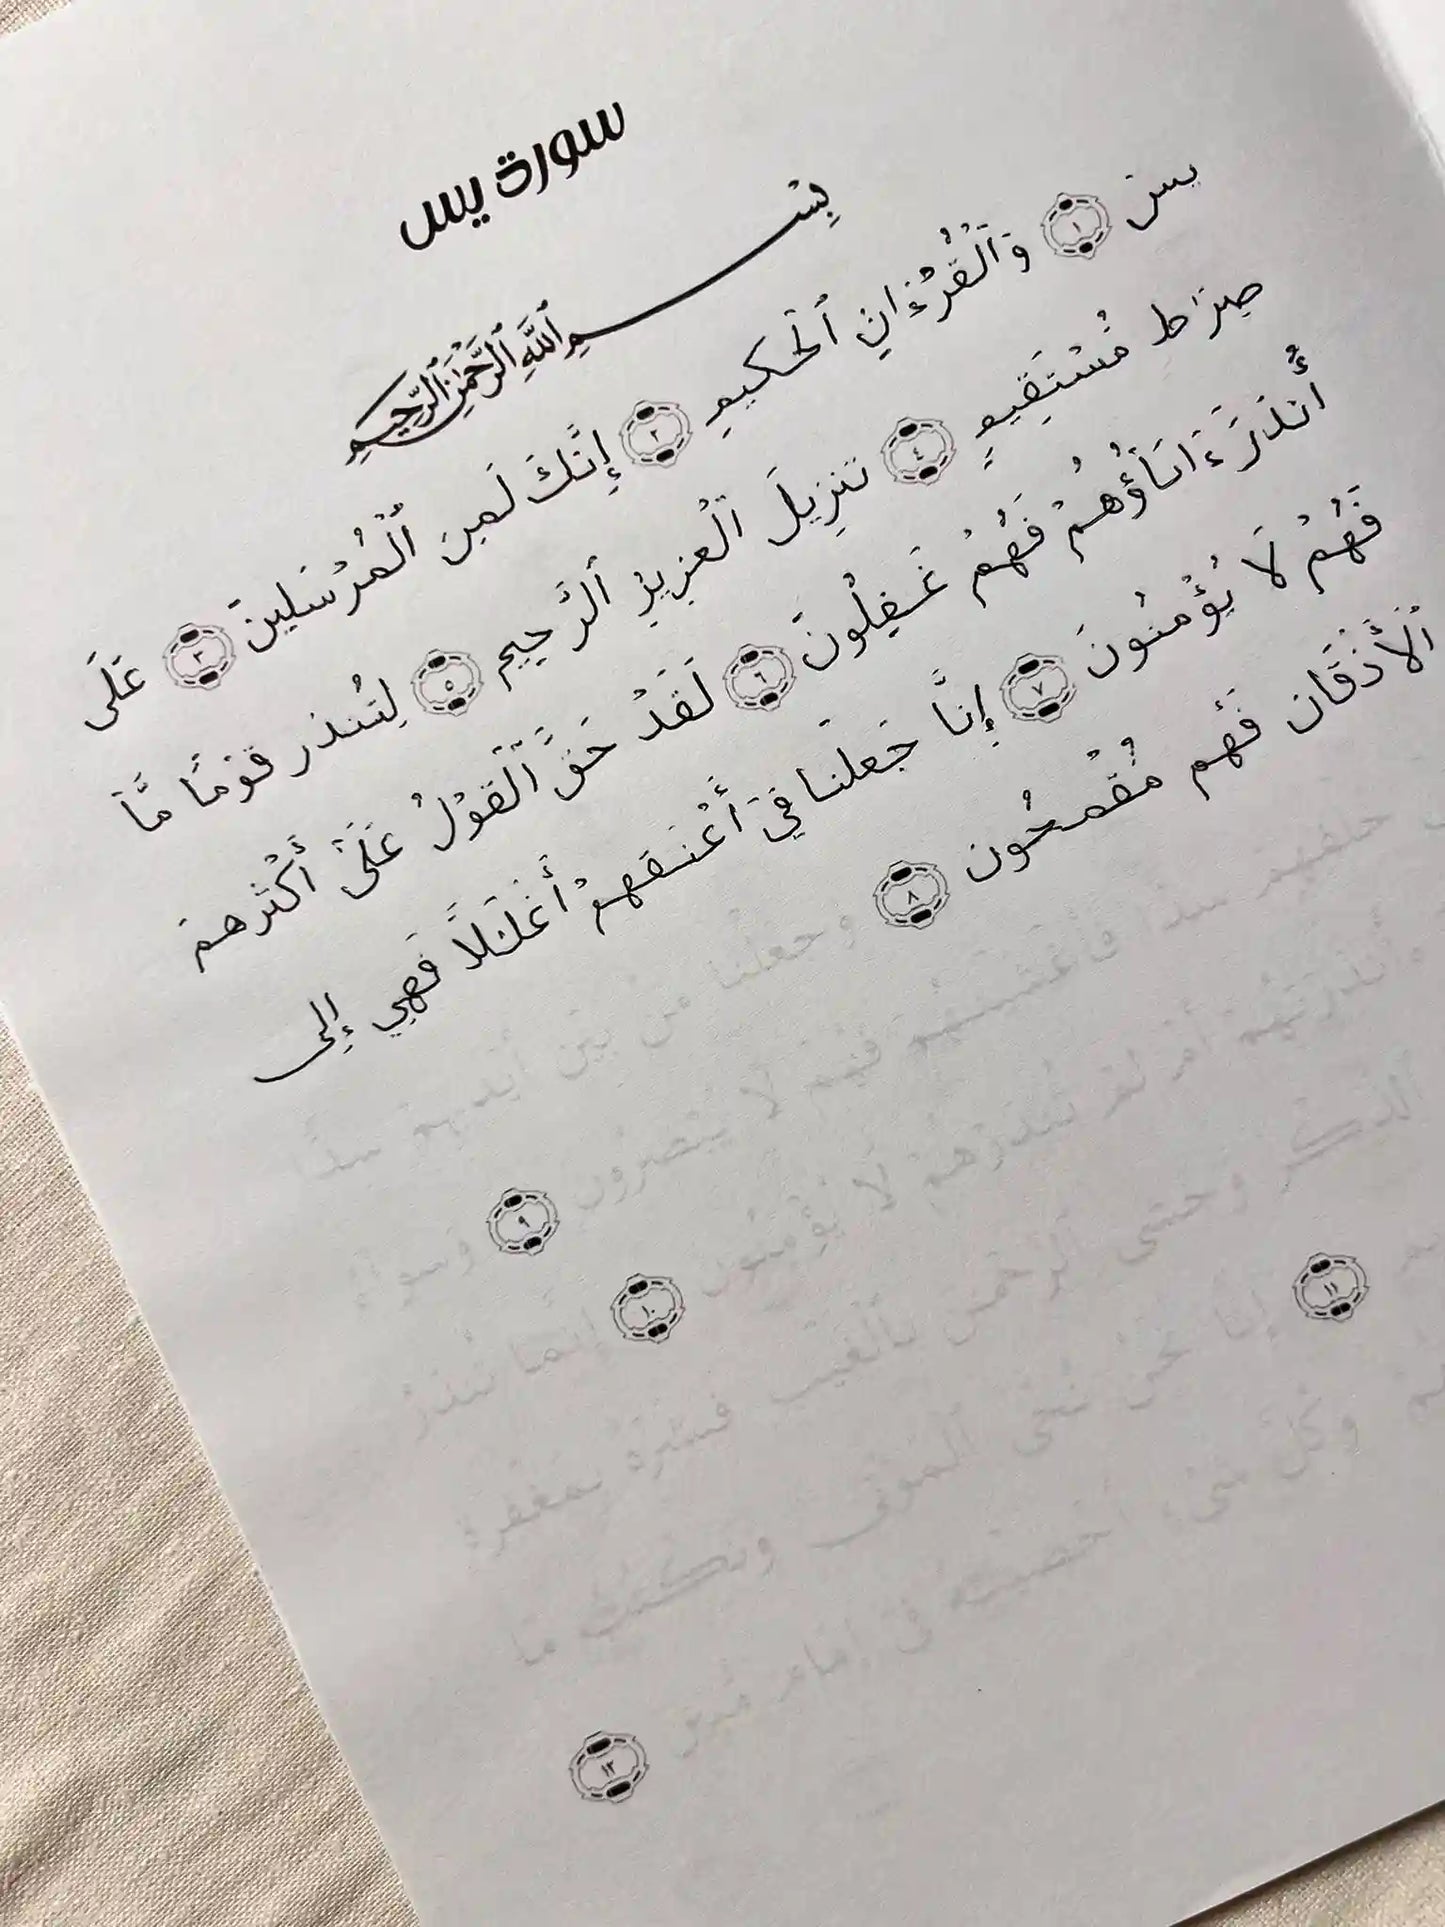 سورة يس
بِسْمِ ٱللَّهِ ٱلرَّحْمَٰنِ ٱلرَّحِيمِ
يسٓ ١ وَٱلْقُرْءَانِ ٱلْحَكِيمِ ٢ إِنَّكَ لَمِنَ ٱلْمُرْسَلِينَ ٣ عَلَىٰ
صِرَٰطٍ مُّسْتَقِيمٍ ٤ تَنزِيلَ ٱلْعَزِيزِ ٱلرَّحِيمِ ٥ لِتُنذِرَ قَوْمًا مَّآ
أُنذِرَ ءَابَآؤُهُمْ فَهُمْ غَٰفِلُونَ ٦ لَقَدْ حَقَّ ٱلْقَوْلُ عَلَىٰٓ أَكْثَرِهِمْ
فَهُمْ لَا يُؤْمِنُونَ ٧ إِنَّا جَعَلْنَا فِىٓ أَعْنَٰقِهِمْ أَغْلَٰلًا فَهِىَ إِلَى
ٱلْأَذْقَانِ فَهُم مُّقْمَحُونَ ٨ وجعلنا من بين أيديهم سدا
خلفهم سدا فأغشينهم فهم لا يبصرون ٩ وسواء
ءأنذرتهم أم لم تنذرهم لا يؤمنون ١٠ إنما تنذر
ٱلذكر وخشى ٱلرحمن بٱلغيب فبشره بمغفرة
١١ إنا نحن نحى ٱلموتى ونكتب ما
وكل شىء أحصينه فى إمام مبين ١٢